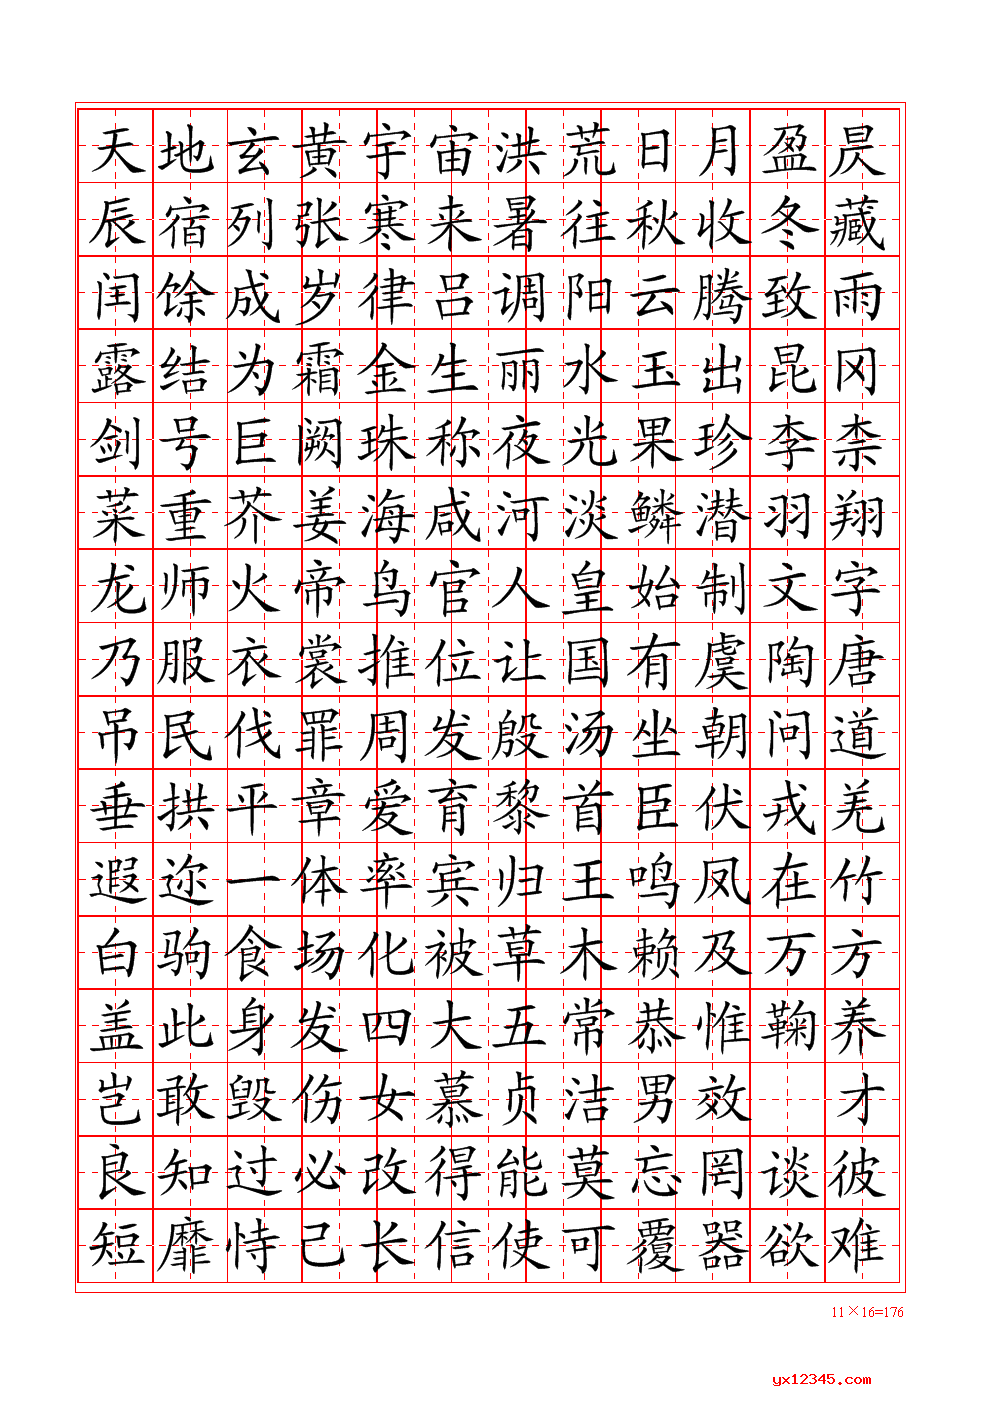 天地玄黄宇宙洪荒日月盈昃
辰宿列张寒来暑往秋收冬藏
闰馀成岁律吕调阳云腾致雨
露结为霜金生丽水玉出昆冈
剑号巨阙珠称夜光果珍李柰
菜重芥姜海咸河淡鳞潜羽翔
龙师火帝鸟官人皇始制文字
乃服衣裳推位让国有虞陶唐
吊民伐罪周发殷汤坐朝问道
垂拱平章爱育黎首臣伏戎羌
遐迩一体率宾归王鸣凤在竹
白驹食场化被草木赖及万方
盖此身发四大五常恭惟鞠养
岂敢毁伤女慕贞洁男效 才
良知过必改得能莫忘罔谈彼
短靡恃己长信使可覆器欲难
11×16=176
yx12345.com